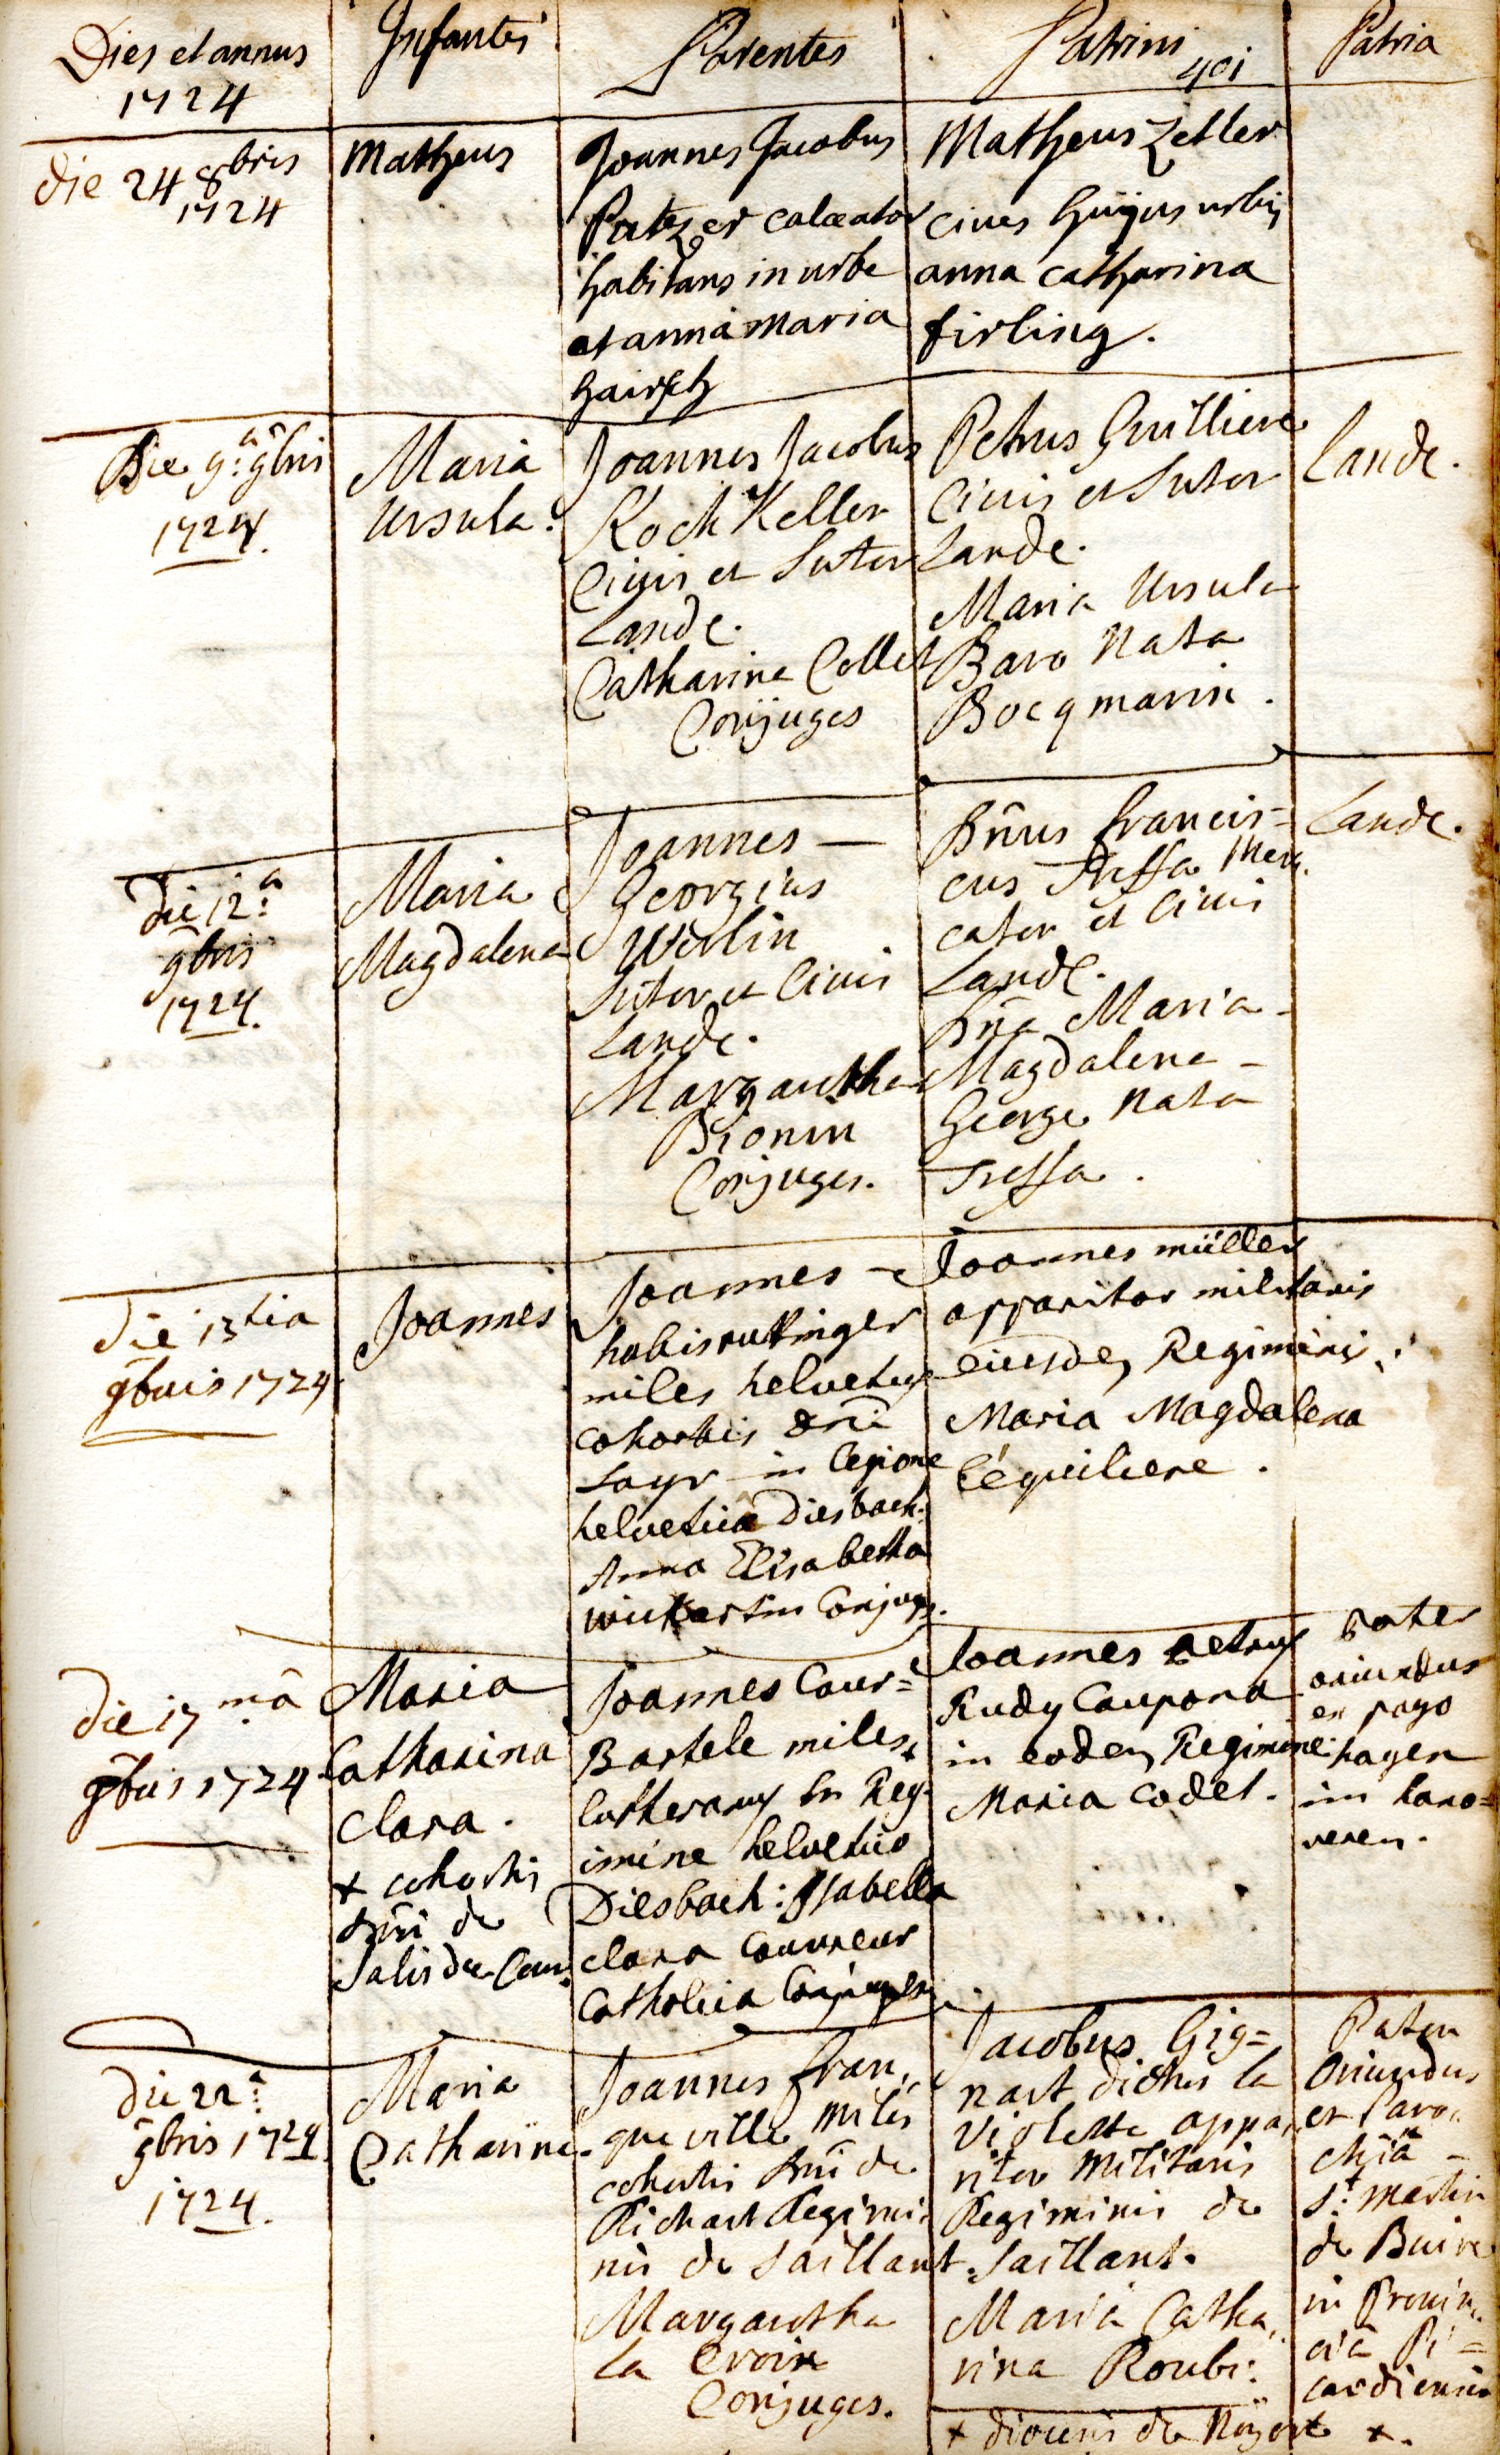 Dies et annus
1724
Infantes
Parentes
Patrini
401
Patria
die 24 8bris
1724
Matheus
Joannes Jacobus
Patzer calcator
habitans in urbe
et anna maria
hairsch
Matheus Zetler
cives huijus urbis
anna catharina
firling.
Die 9.a 9bris
1724.
Maria
Ursula.
Joannes Jacobus
Koch Keller
Civis et Sutor
Landt.
Catharine Collet
Conjuges
Petrus Guilliere
Civis et Sutor
Landt.
Maria Ursula
Baro Nata
Bocqmarin.
Landt.
Die 12.a
9bris
1724.
Maria
Magdalena
Joannes —
Georgius
Werlin
Sutor et Civis
Landt.
Margaretha
Bionin
Conjuges.
Dnus francis=
cus Tressa Mer.
cator et Civis
Landt.
Dna Maria -
Magdalena -
George Nata
Tressa.
Landt.
die 13tia
9bris 1724
Joannes
Joannes -
miles helvetus
cohortis dni
Sayr in legione
helvetica Diesbach.
Anna Elisabetha
Conjuges.
Joannes müller
apparitor militaris
eiusdem Regiminis.
Maria Magdalena
Léquiliere.
die 17mâ
9bris 1724
Maria
Catharina
Clara.
+ cohortis
dni de
Salis du
Joannes Cour=
Bartele miles +
lutheranus in Reg-
imine helvetico
Diesbach: Isabella
clara couvreur
Catholica Conjuges.
Joannes Petrus
Rudy Caupona
in eodem Regimine.
Maria Codet.
Pater
oriundus
ex pago
hagen
im hano=
veren.
die 22.a
9bris 1724
1724.
Maria
Catharina.
Joannes fran,
queville Miles
cohortis dni de
Richart Regimi,
nis de Saillant.
Margaretha
la Croix
Conjuges.
Jacobus Gig=
nart dictus la
Violette appa,
ritor Militaris
Regiminis de
Saillant.
Maria Catha,
rina Roubi.
Pater
Oriundus
ex Paro,
chiâ -
St. Martin
de Buire
in Provin,
ciâ Pi=
cardiensi
+ diocesis de Noyort +.